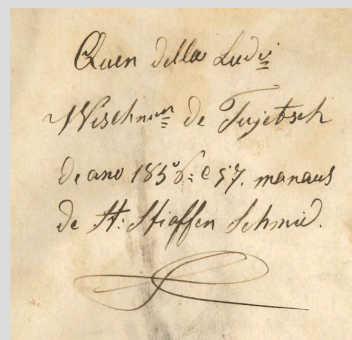 Quen della Ludi
Wischnaun de Tujetsch
de ano 1856: e 57. manaus
de H: Stiaffen Schmid.